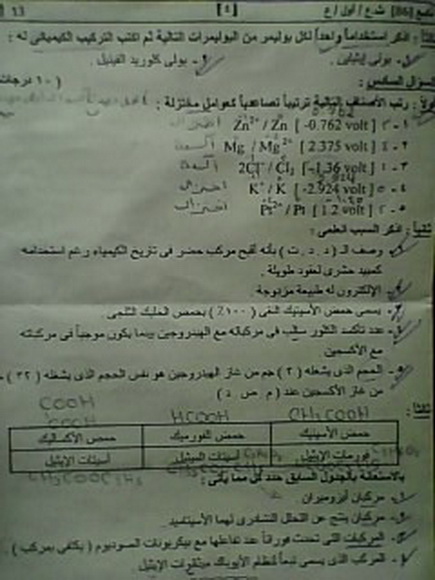 تابع [86] ث.ع / أول / ع [٤]
ثالثاً : اذكر استخداماً واحداً لكل بوليمر من البوليمرات التالية ثم اكتب التركيب الكيميائى له :
١- بولى إيثيلين . ٢- بولى كلوريد الفينيل .
السؤال السادس : ( ١٠ درجات
أولاً : رتب الأصناف التالية ترتيباً تصاعدياً كعوامل مختزلة :
١- Zn²⁺ / Zn [ -0.762 volt ] اختزال
٢- Mg / Mg²⁺ [ 2.375 volt ] أكسدة
٣- 2Cl⁻ / Cl₂ [ -1.36 volt ] أكسدة
٤- K⁺ / K [ -2.924 volt ] اختزال
٥- Pt²⁺ / Pt [ 1.2 volt ] اختزال
ثانياً : اذكر السبب العلمى :
١- وصف الـ ( د . د . ت ) بأنه أقبح مركب حضر فى تاريخ الكيمياء رغم استخدامه
كمبيد حشرى لعقود طويلة .
٢- الإلكترون له طبيعة مزدوجة .
٣- يسمى حمض الأسيتيك النقى ( ١٠٠٪ ) بحمض الخليك الثلجى .
٤- عدد تأكسد الفلور سالب فى مركباته مع الهيدروجين بينما يكون موجباً فى مركباته
مع الأكسجين
٥- الحجم الذى يشغله ( ٢ ) جم من غاز الهيدروجين هو نفس الحجم الذى يشغله ( ٣٢ )
من غاز الأكسجين عند ( م . ض . د )
ثالثاً :
CH₃COOH HCOOH COOH
COOH
حمض الأسيتيك حمض الفورميك حمض الأكساليك
فورمات الإيثيل أسيتات الميثيل أسيتات الإيثيل
CH₃COOC₂H₅
بالاستعانة بالجدول السابق حدد كل مما يأتى :
١- مركبان أيزوميران
٢- مركبان ينتج عن التحلل النشادرى لهما الأسيتاميد .
٣- المركبات التى تحدث فوراناً عند تفاعلها مع بيكربونات الصوديوم ( يكتفى بمركب ) .
٤- المركب الذى يسمى تبعاً لنظام الأيوباك ميثانوات الإيثيل